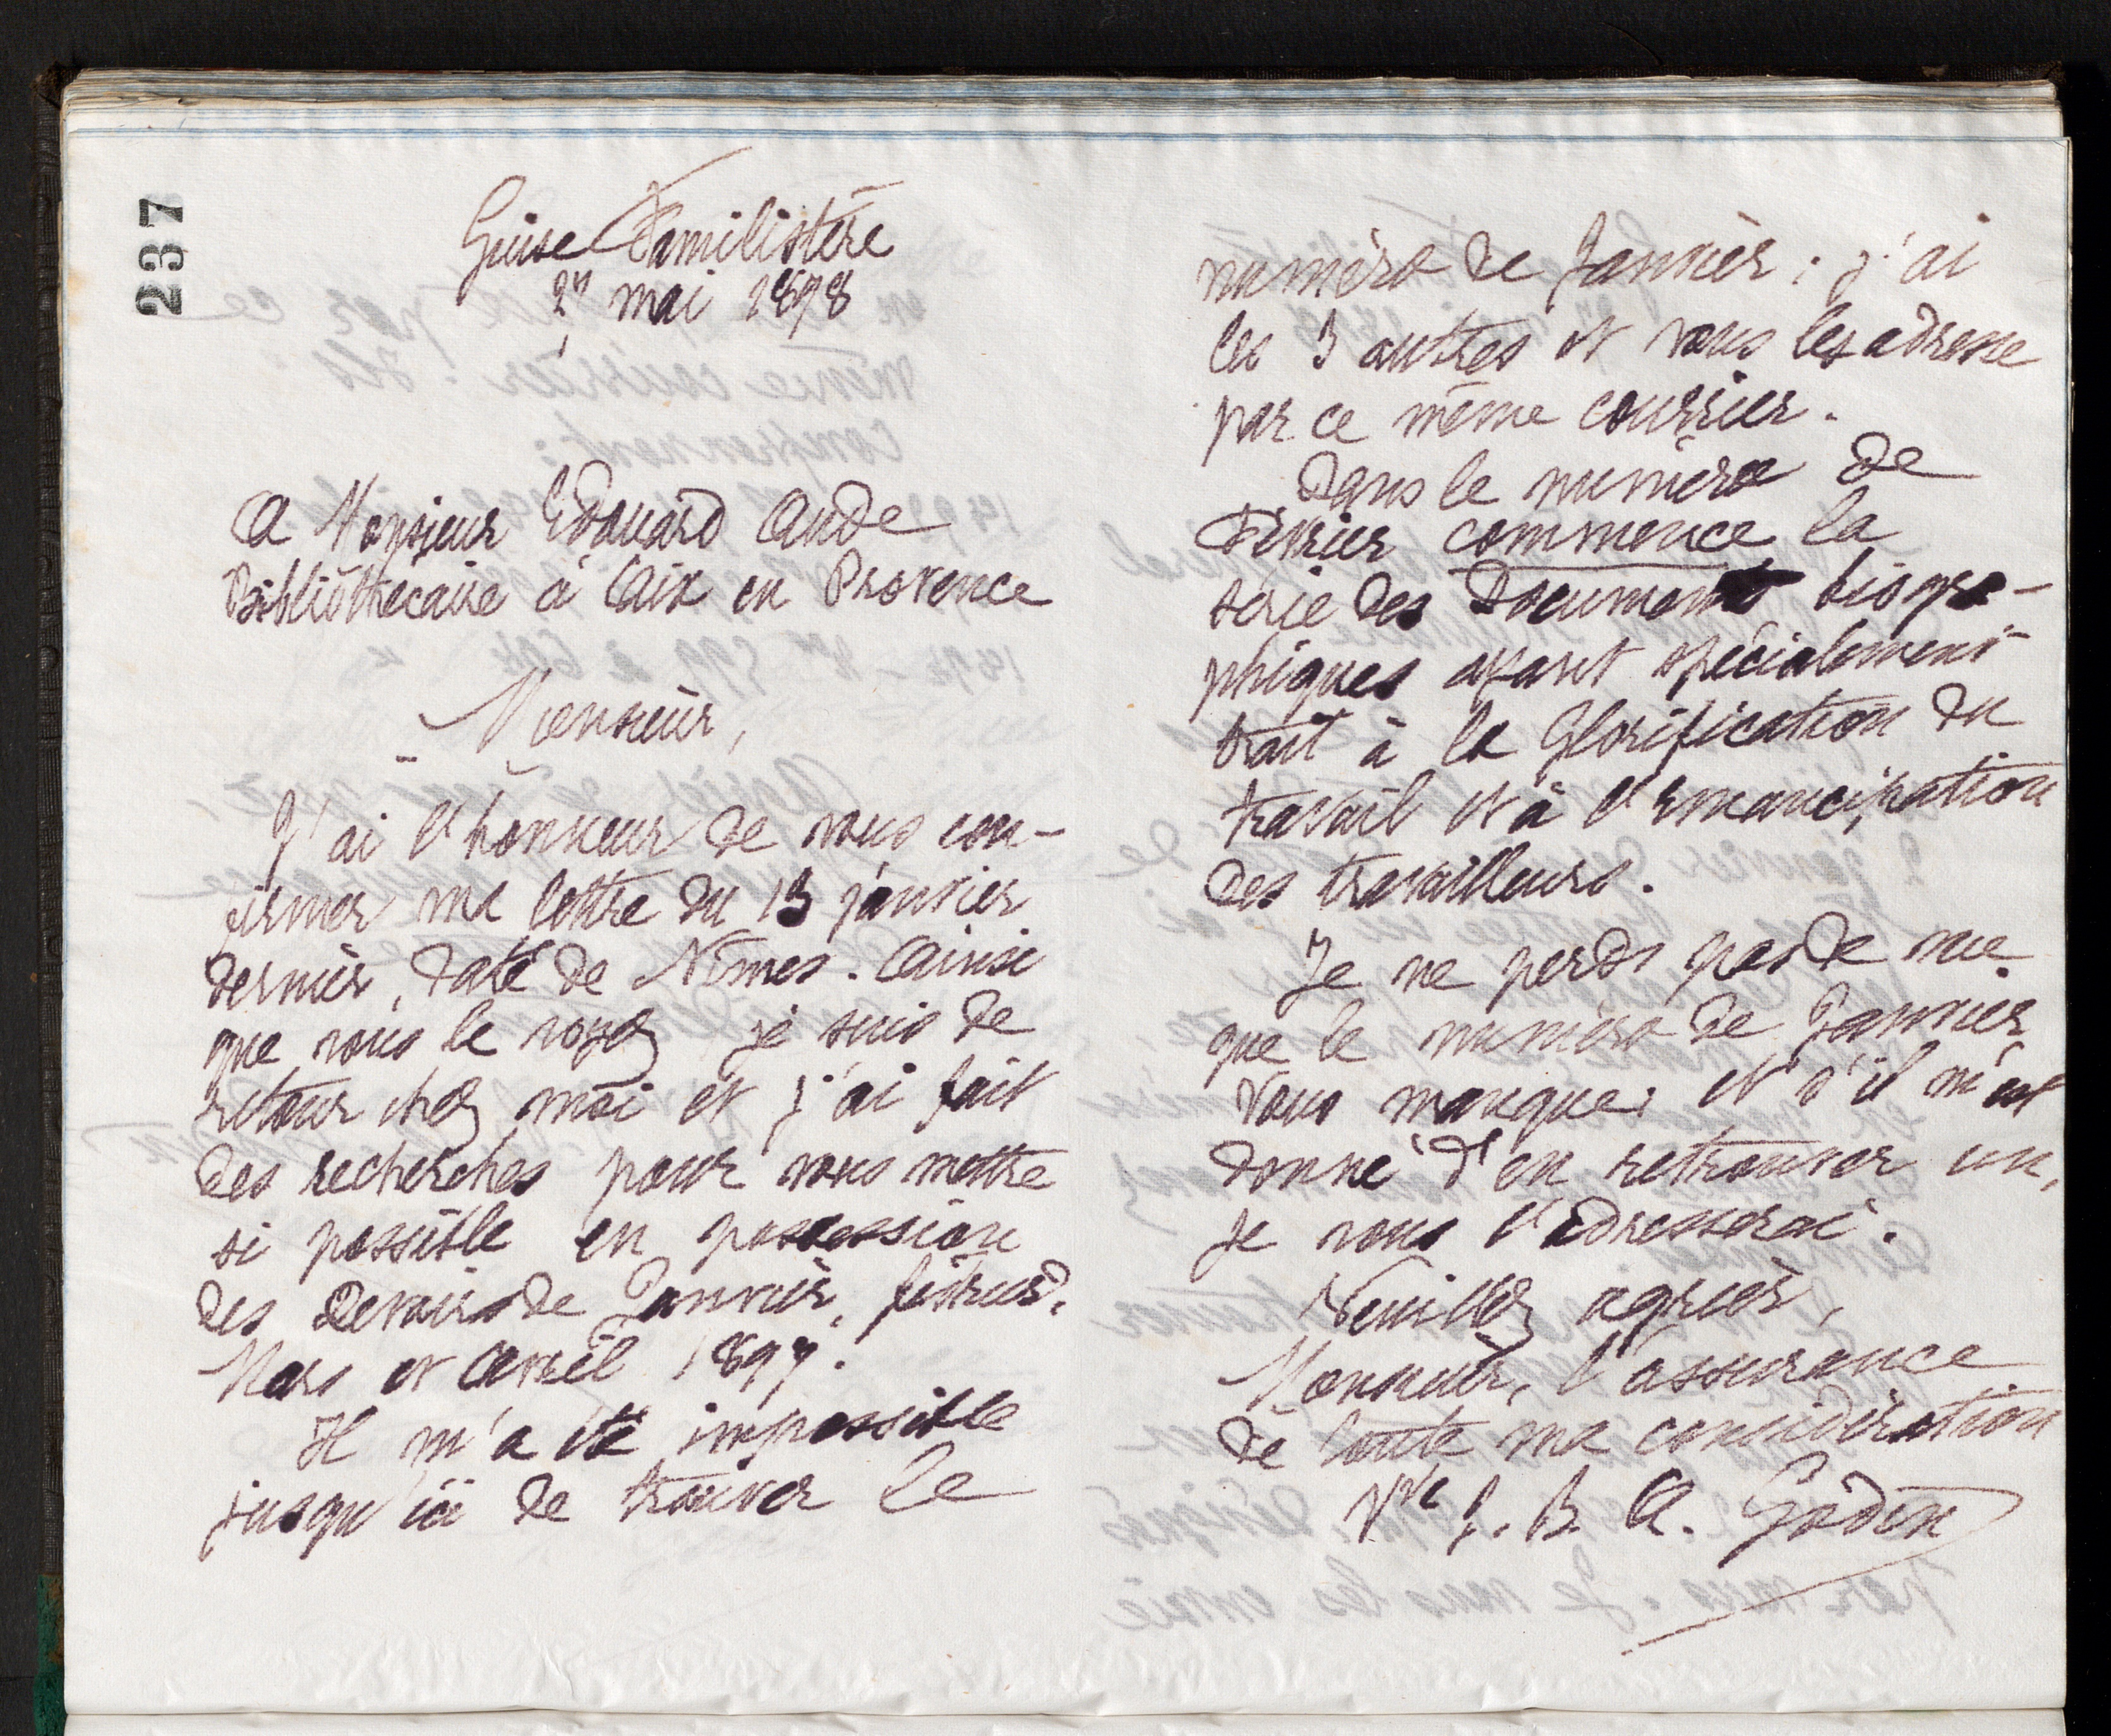 237
Guise Familistère
27 mai 1898
A Monsieur Edouard Aude
Bibliothécaire à Aix en Provence
Monsieur,
J'ai l'honneur de vous con-
firmer ma lettre du 13 janvier
dernier, daté de Nîmes. Ainsi
que vous le voyez je suis de
retour chez moi et j'ai fait
des recherches pour vous mettre
si possible en possession
des Devoirs de Janvier, février,
Mars et Avril 1897.
Il m'a été impossible
jusqu'ici de trouver le
numéro de Janvier ; j'ai
les 3 autres et vous les adresse
par ce même courrier.
Dans le numéro de
Février commence la
série des Documents biogra-
phiques ayant spécialement
trait à la Glorification du
travail et à l'Emancipation
des travailleurs.
Je ne perds pas de vue
que le numéro de Janvier
vous manque ; et s'il m'est
donné d'en retrouver un,
je vous l'adresserai.
Veuillez agréer,
Monsieur, l'assurance
de toute ma considération
Vve J. B. A. Godin